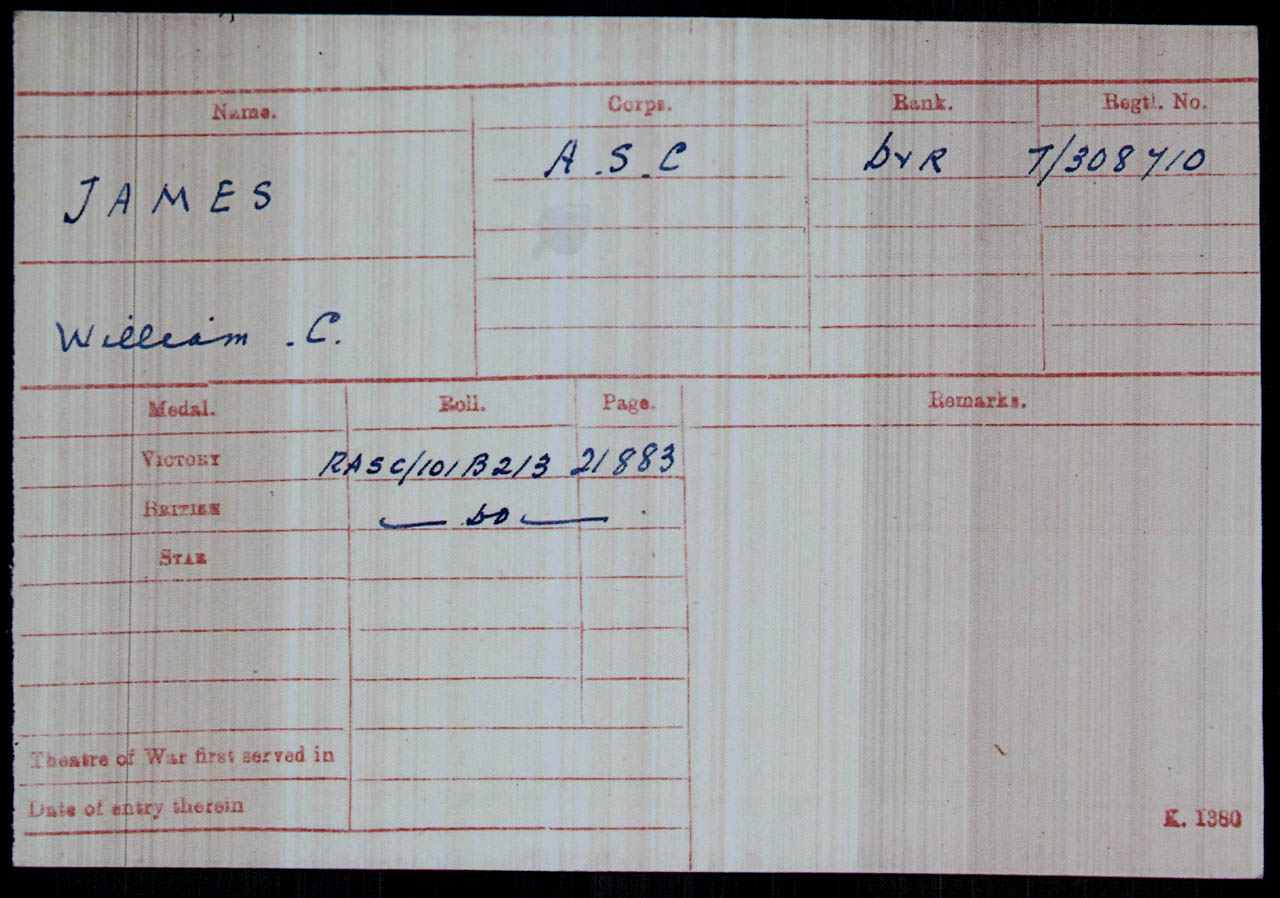 Name. Corps. Rank. Regtl. No.
A.S.C DvR T/308710
JAMES
William .C.
Medal. Roll. Page. Remarks.
VICTORY RASC/101B213 21883
BRITISH — DO —
STAR
Theatre of War first served in
Date of entry therein
K. 1380